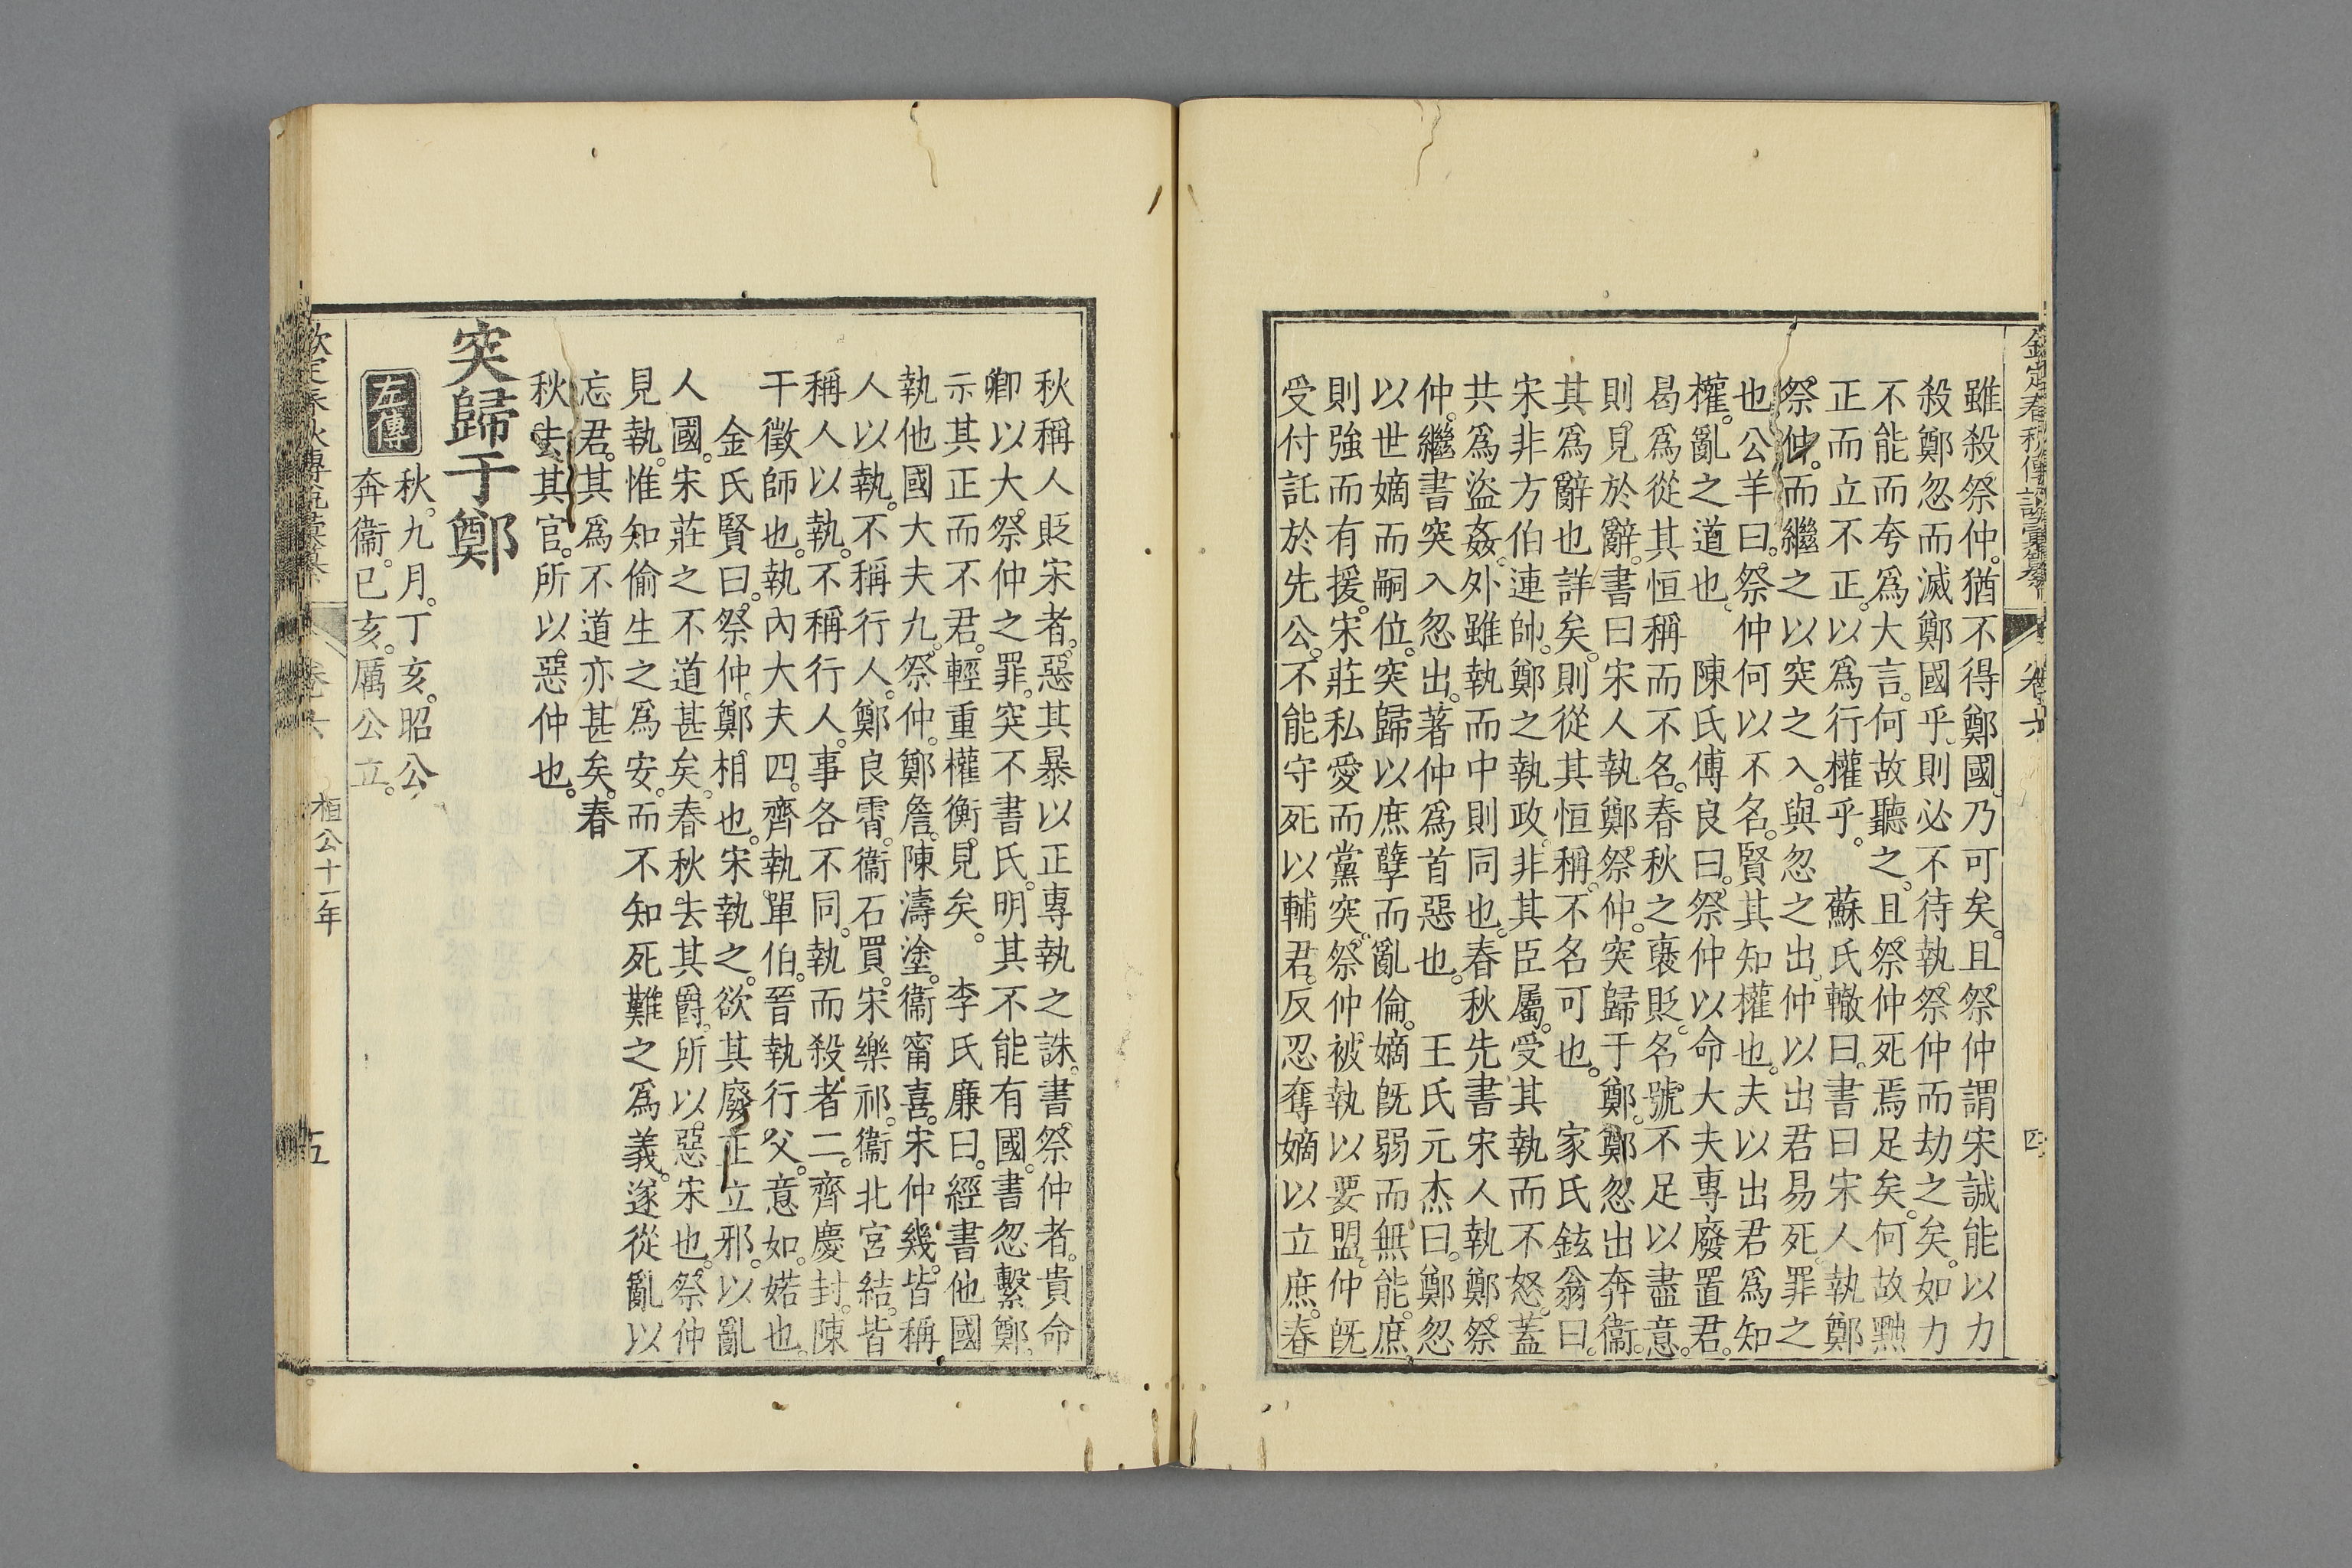 雖殺祭仲。猶不得鄭國。乃可矣。且祭仲謂宋誠能以力
殺鄭忽而滅鄭國乎。則必不待執祭仲而劫之矣。如力
不能而夸爲大言。何故聽之。且祭仲死焉足矣。何故黜
正而立不正。以爲行權乎。蘇氏轍曰。書曰宋人執鄭
祭仲。而繼之以突之入。與忽之出。仲以出君易死。罪之
也。公羊曰。祭仲何以不名。賢其知權也。夫以出君爲知
權。亂之道也。陳氏傅良曰。祭仲以命大夫專廢置君。
曷爲從其恒稱而不名。春秋之襃貶。名號不足以盡意。
則見於辭。書曰宋人執鄭祭仲。突歸于鄭。鄭忽出奔衞。
其爲辭也詳矣。則從其恒稱。不名可也。家氏鉉翁曰。
宋非方伯連帥。鄭之執政。非其臣屬。受其執而不怒。蓋
共爲盜姦。外雖執而中則同也。春秋先書宋人執鄭祭
仲。繼書突入忽出。著仲爲首惡也。王氏元杰曰。鄭忽
以世嫡而嗣位。突歸以庶孽而亂倫。嫡旣弱而無能。庶
則強而有援。宋莊私愛而黨突。祭仲被執以要盟。仲旣
受付託於先公。不能守死以輔君。反忍奪嫡以立庶。春
卷六
四
秋稱人貶宋者。惡其暴以正專執之誅。書祭仲者。貴命
卿以大。祭仲之罪。突不書氏。明其不能有國。書忽繫鄭。
示其正而不君。輕重權衡。見矣。李氏廉曰。經書他國
執他國大夫九。祭仲。鄭詹。陳濤塗。衞甯喜。宋仲幾。皆稱
人以執。不稱行人。鄭良霄。衞石買。宋樂祁。衞北宮結。皆
稱人以執。不稱行人。事各不同。執而殺者二。齊慶封。陳
干徵師也。執內大夫四。齊執單伯。晉執行父。意如。婼也。
金氏賢曰。祭仲。鄭相也。宋執之。欲其廢正立邪。以亂
人國。宋莊之不道甚矣。春秋去其爵。所以惡宋也。祭仲
見執。惟知偷生之爲安。而不知死難之爲義。遂從亂以
忘君。其爲不道亦甚矣。春
秋去其官。所以惡仲也。
突歸于鄭
左傳
秋。九月。丁亥。昭公
奔衞。己亥。厲公立。
桓公十一年
五